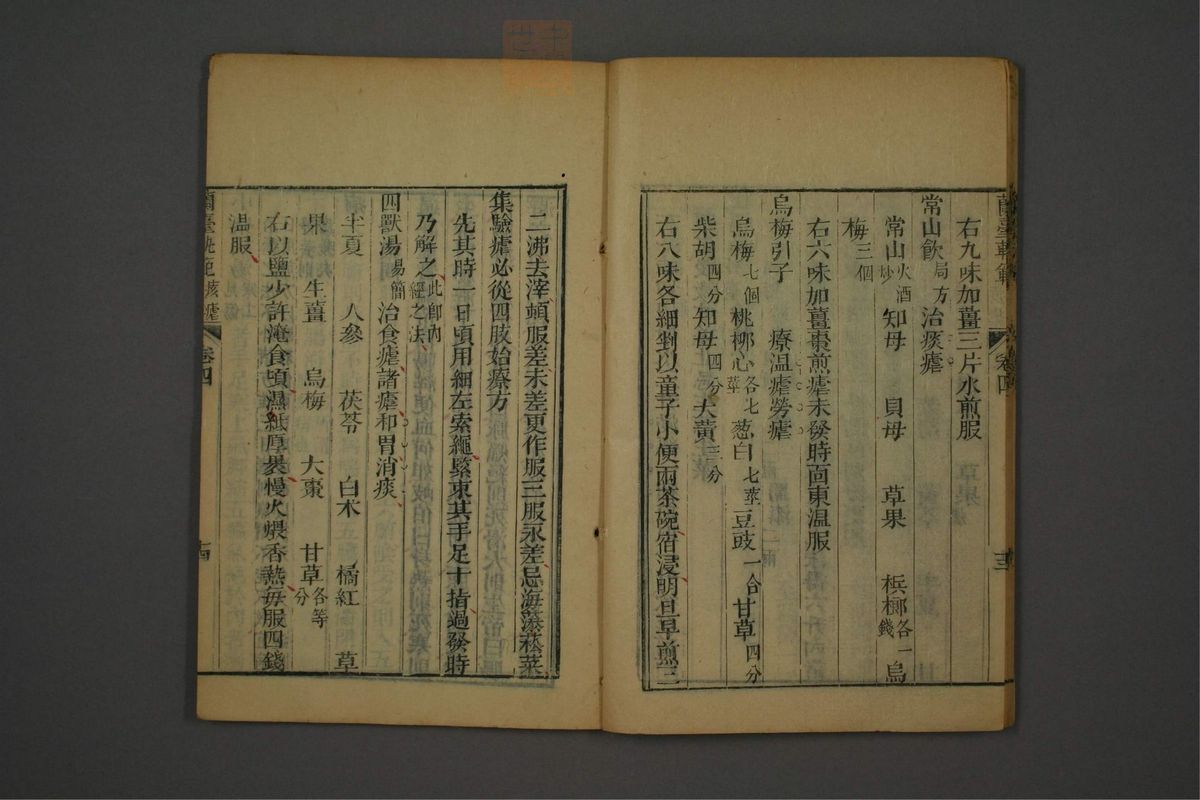 右九味加薑三片水煎服
常山飲局方治痰瘧
常山火酒炒 知母 貝母 草果 檳榔各一錢 烏
梅三個
右六味加薑棗煎瘧未發時面東溫服
烏梅引子 療溫瘧勞瘧
烏梅七個 桃柳心各七莖 葱白七莖 豆豉一合 甘草四分
柴胡四分 知母四分 大黃三分
右八味各細剉以童子小便兩茶碗宿浸明旦早煎三
二沸去滓頓服差未差更作服三服永差忌海藻菘菜
集驗瘧必從四肢始療方
先其時一日頃用細左索繩緊束其手足十指過發時
乃解之此即內經之法
四獸湯易簡 治食瘧諸瘧和胃消痰
半夏 人參 茯苓 白朮 橘紅 草
果 生薑 烏梅 大棗 甘草各等分
右以鹽少許淹食頃濕紙厚裹慢火煨香熟每服四錢
溫服
卷四
十三
蘭臺軌範
卷四
十四